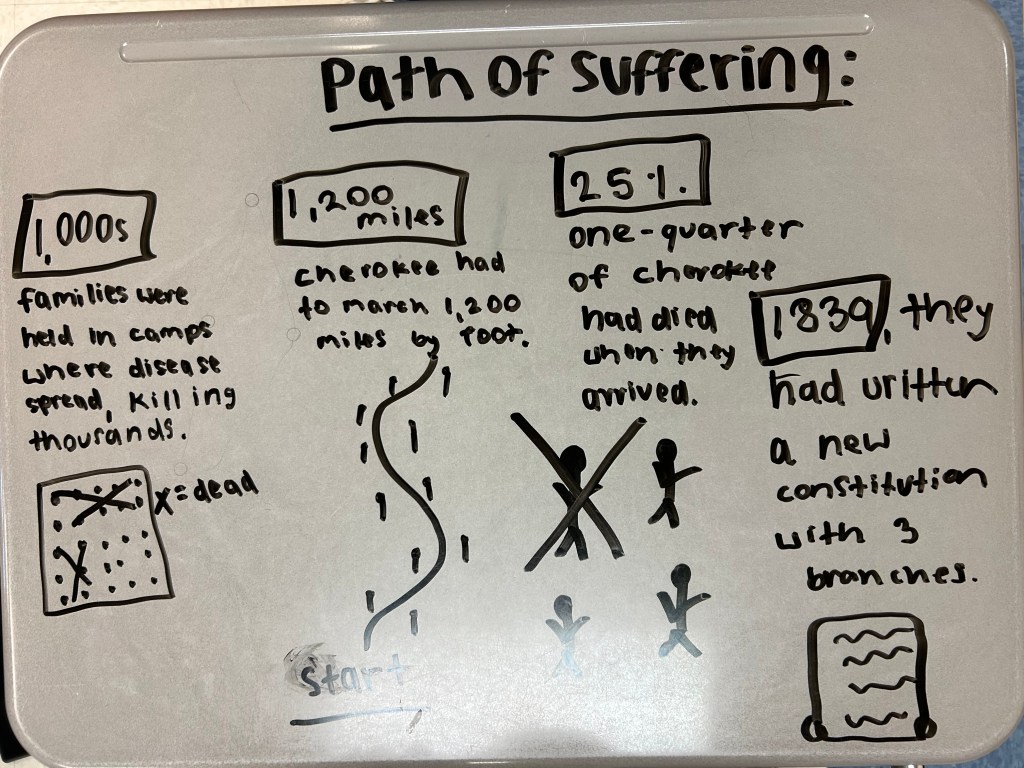 Path Of Suffering:
1,000s
families were
held in camps
where disease
spread, killing
thousands.
x=dead
1,200
miles
cherokee had
to march 1,200
miles by foot.
start
25%.
one-quarter
of cherokee
had died
when they
arrived.
1839, they
had written
a new
constitution
with 3
branches.